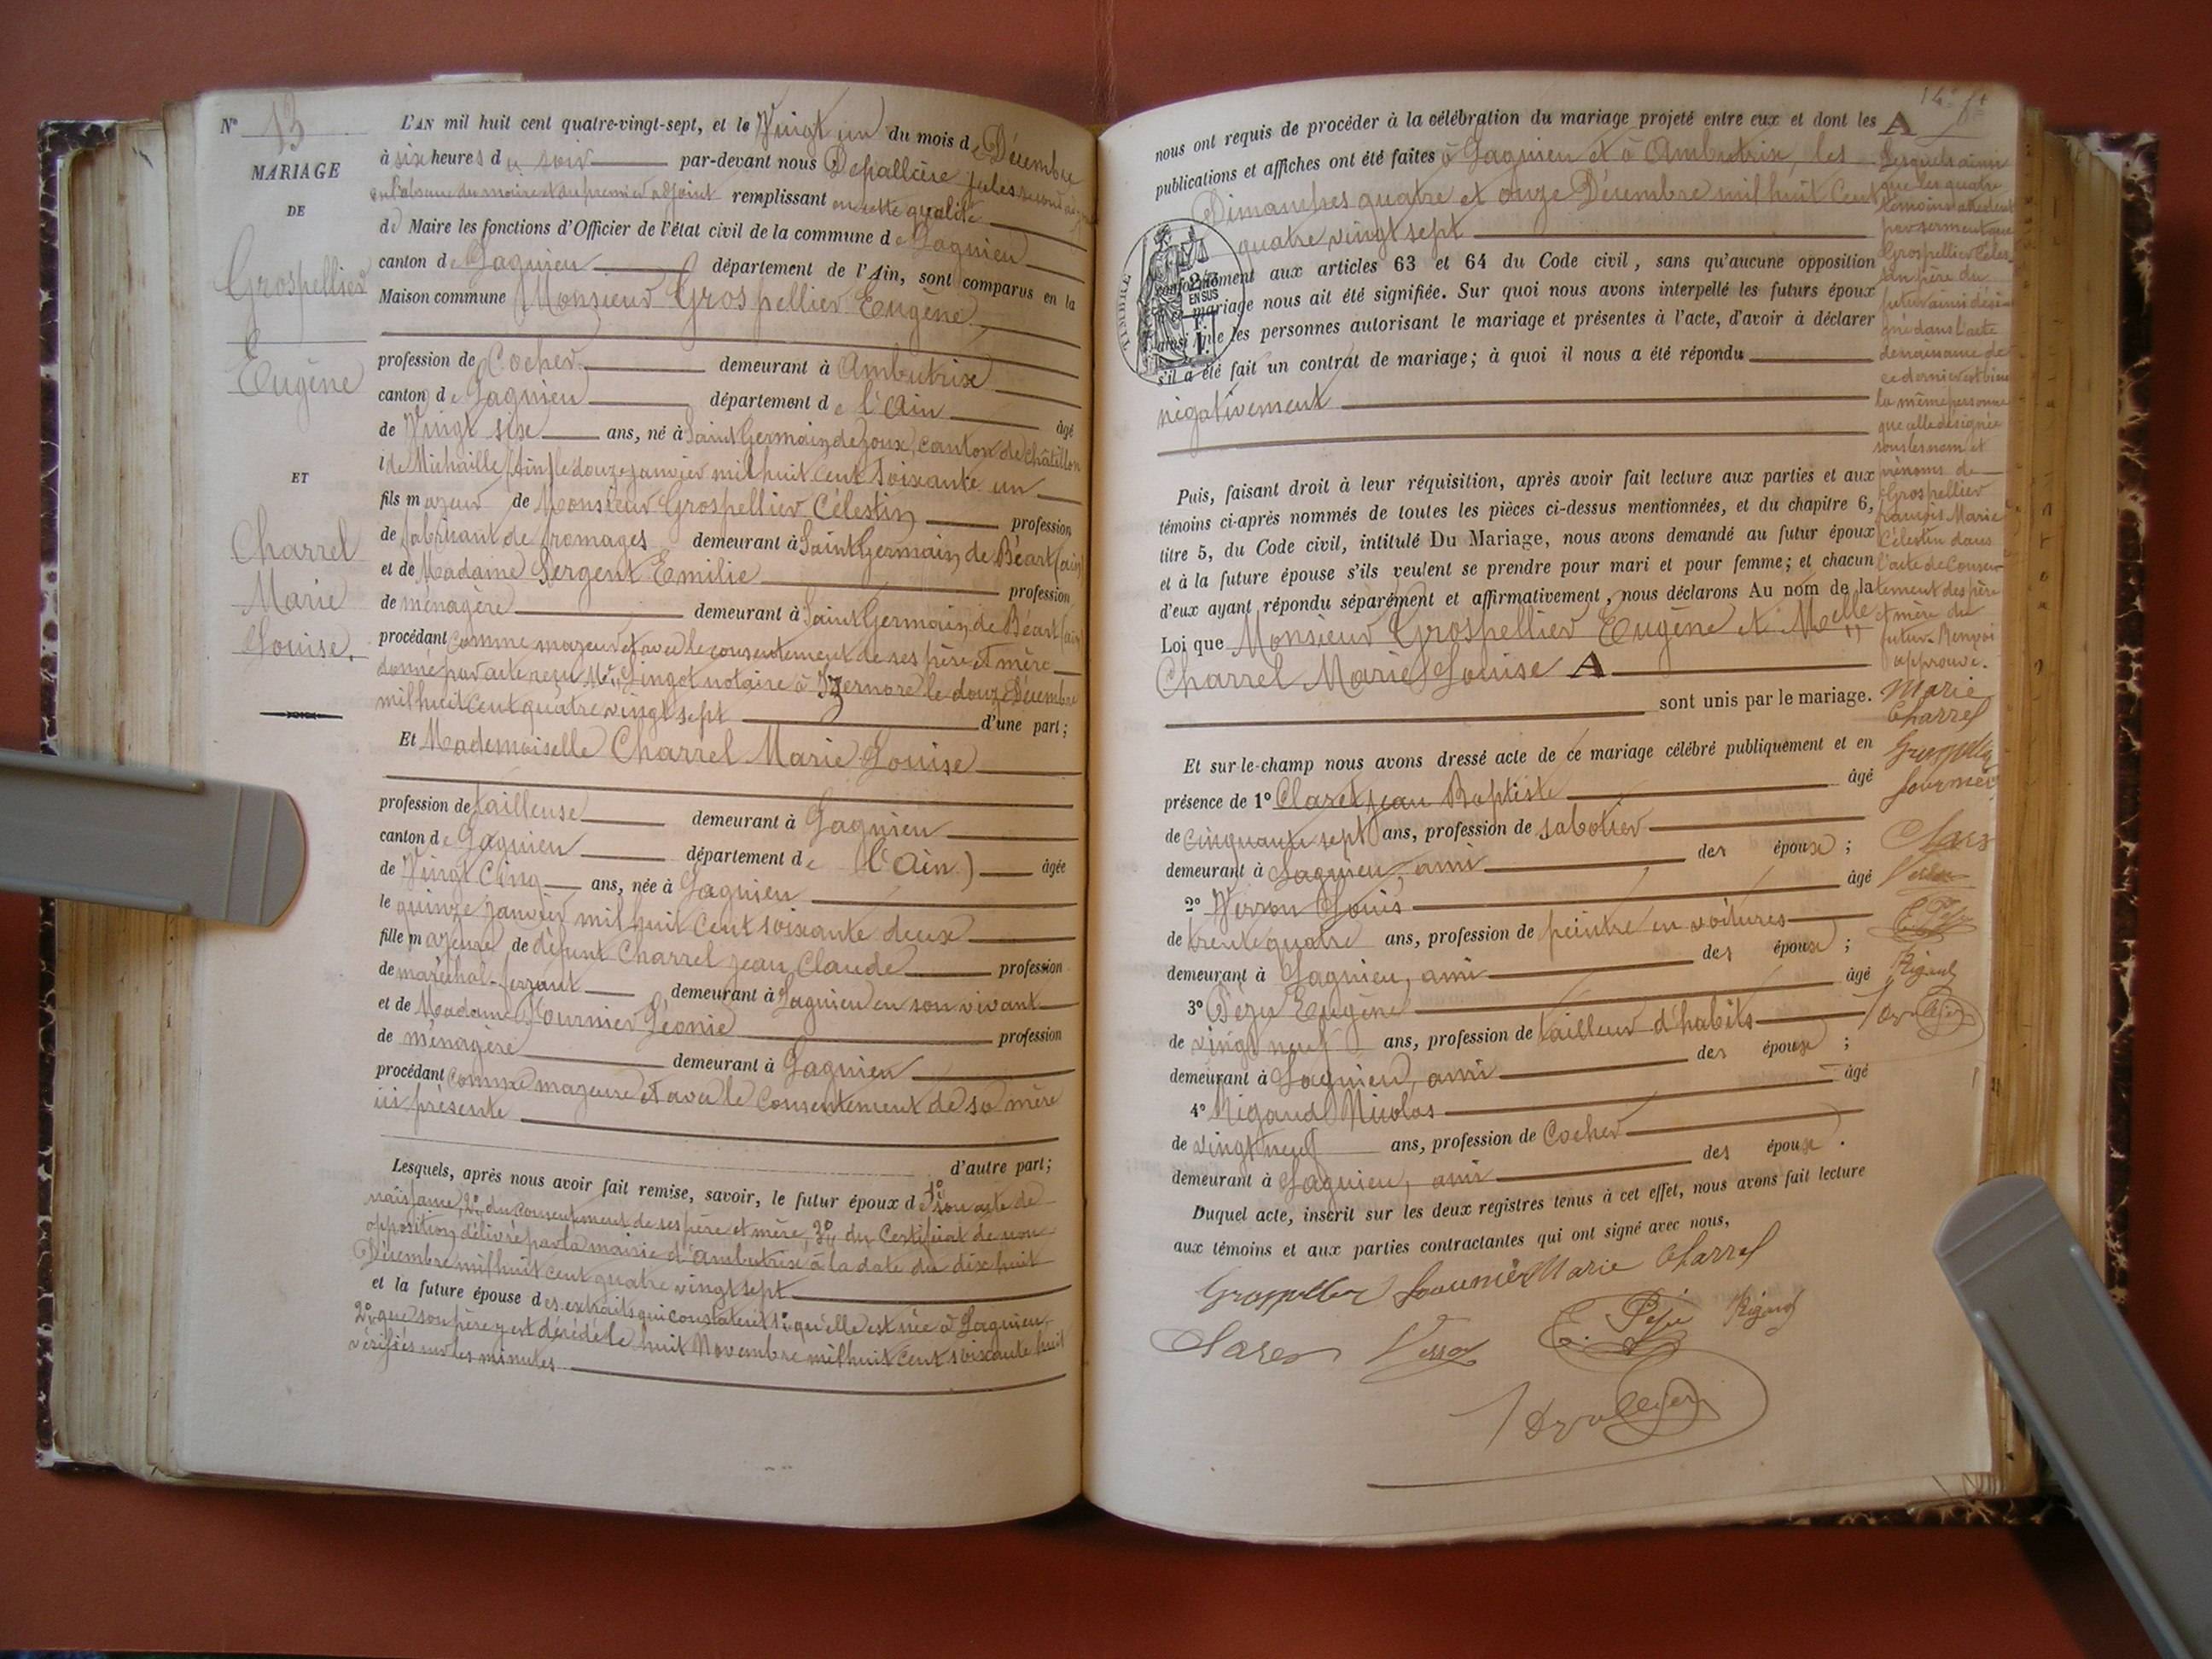 N° 13
MARIAGE
DE
Grospellier
Eugène
ET
Charrel
Marie
Louise.
L'AN mil huit cent quatre-vingt-sept, et le Vingt un du mois de Décembre
à six heures du soir par-devant nous Depallière Jules second adjoint
en l'absence du maire et du premier adjoint remplissant en cette qualité
de Maire les fonctions d'Officier de l'état civil de la commune de Lagnieu
canton de Lagnieu département de l'Ain, sont comparus en la
Maison commune Monsieur Grospellier Eugène
profession de Cocher demeurant à Ambutrix
canton de Lagnieu département de l'Ain âgé
de Vingt six ans, né à Saint Germain de Joux, canton de Châtillon
de Michaille (Ain) le douze janvier mil huit cent soixante un
fils majeur de Monsieur Grospellier Célestin profession
de fabricant de fromages demeurant à Saint Germain de Béart (ain)
et de Madame Sergent Emilie profession
de ménagère demeurant à Saint Germain de Béart (ain)
procédant comme majeur et avec le consentement de ses père et mère
donné par acte reçu Me Lingot notaire à Izernore le douze Décembre
mil huit cent quatre vingt sept d'une part;
Et Mademoiselle Charrel Marie Louise
profession de tailleuse demeurant à Lagnieu
canton de Lagnieu département de l'Ain) âgée
de Vingt Cinq ans, née à Lagnieu
le quinze janvier mil huit cent soixante deux
fille majeure de défunt Charrel Jean Claude profession
de maréchal-ferrant demeurant à Lagnieu en son vivant
et de Madame Fournier Léonie profession
de ménagère demeurant à Lagnieu
procédant comme majeure et avec le consentement de sa mère
ici présente
d'autre part;
Lesquels, après nous avoir fait remise, savoir, le futur époux de 1° son acte de
naissance, 2° du consentement de ses père et mère, 3° du Certificat de non
opposition délivré par la mairie d'Ambutrix à la date du dix huit
Décembre mil huit cent quatre vingt sept
et la future épouse des extraits qui constatent 1° qu'elle est née à Lagnieu,
2° que son père y est décédé le huit Novembre mil huit cent soixante huit
vérifiés sur les minutes
nous ont requis de procéder à la célébration du mariage projeté entre eux et dont les
publications et affiches ont été faites à Lagnieu et à Ambutrix, les
Dimanches quatre et onze Décembre mil huit Cent
quatre vingt sept
conformément aux articles 63 et 64 du Code civil, sans qu'aucune opposition
à ce mariage nous ait été signifiée. Sur quoi nous avons interpellé les futurs époux
ainsi que les personnes autorisant le mariage et présentes à l'acte, d'avoir à déclarer
s'il a été fait un contrat de mariage; à quoi il nous a été répondu
négativement
TIMBRE
2/3
EN SUS
Puis, faisant droit à leur réquisition, après avoir fait lecture aux parties et aux
témoins ci-après nommés de toutes les pièces ci-dessus mentionnées, et du chapitre 6,
titre 5, du Code civil, intitulé Du Mariage, nous avons demandé au futur époux
et à la future épouse s'ils veulent se prendre pour mari et pour femme; et chacun
d'eux ayant répondu séparément et affirmativement, nous déclarons Au nom de la
Loi que Monsieur Grospellier Eugène et Melle
Charrel Marie Louise A
sont unis par le mariage.
Et sur-le-champ nous avons dressé acte de ce mariage célébré publiquement et en
présence de 1° Claret Jean Baptiste âgé
de cinquante sept ans, profession de sabotier
demeurant à Lagnieu, ami des époux;
2° Verron Louis âgé
de trente quatre ans, profession de peintre en voitures
demeurant à Lagnieu, ami des époux;
3° Pezu Eugène âgé
de vingt neuf ans, profession de tailleur d'habits
demeurant à Lagnieu, ami des époux;
4° Rigaud Nicolas âgé
de vingt neuf ans, profession de Cocher
demeurant à Lagnieu, ami des époux.
Duquel acte, inscrit sur les deux registres tenus à cet effet, nous avons fait lecture
aux témoins et aux parties contractantes qui ont signé avec nous,
Grospellier Fournier Marie Charrel
E. Pezu Rigaud
A
Lesquels ainsi
que les quatre
témoins attestent
par serment que
Grospellier Céles-
tin père du
futur ainsi dési-
gné dans l'acte
de naissance de
ce dernier est bien
la même personne
que celle désignée
sous les nom et
prénoms de
Grospellier
François Marie
Célestin dans
l'acte de consen-
tement des père
et mère du
futur. Renvoi
approuvé.
Marie
Charrel
Grospellier
Fournier
E. Pezu
Rigaud